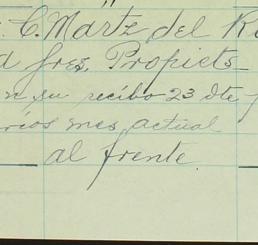 C. Martz del
frez. Propicts-
n su recibo 23 dte
rios mes actual
al frente